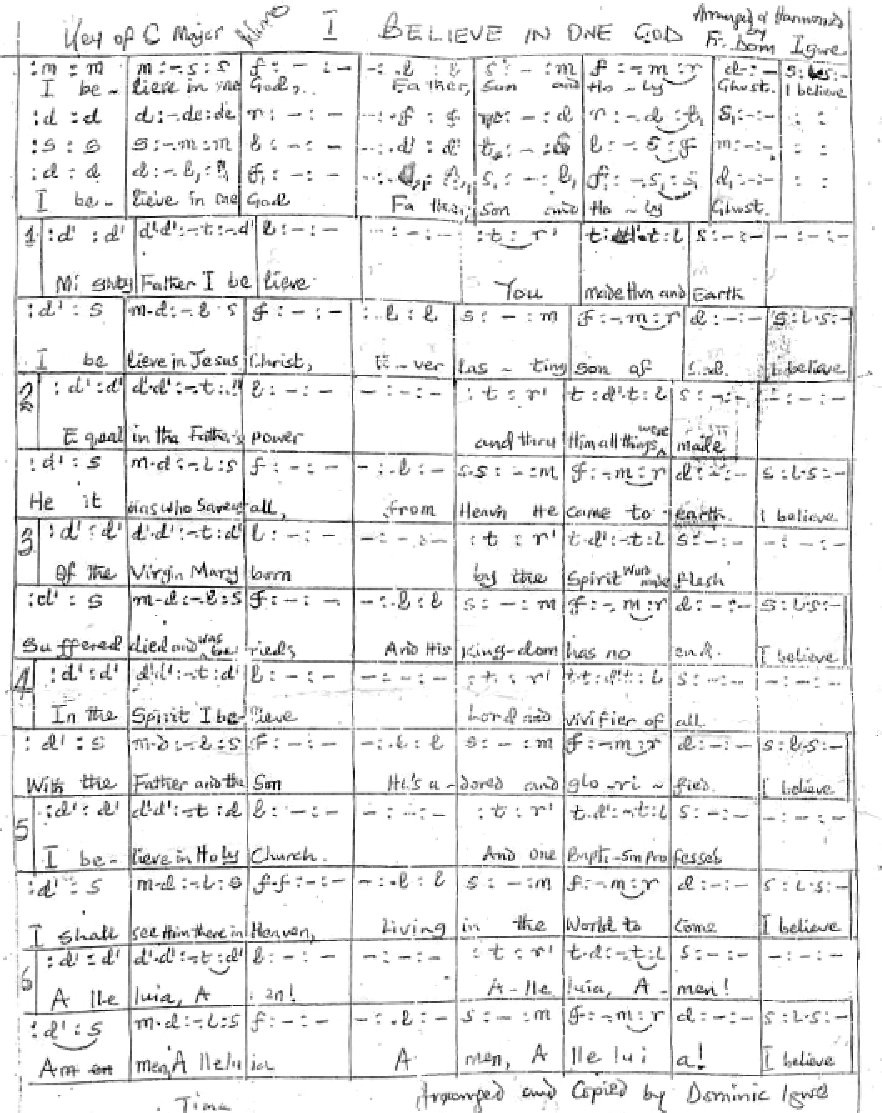 Key of C Major I BELIEVE IN ONE GOD Arranged & Harmonised by
Fr. Dom Igwe
:m :m | m:-.s:s | f:-:- | -:.l:l | s:-:m | f:-.m:r | d:-:- | s:l.s:-
I be- lieve in one God, Father, Son and Ho-ly Ghost. I believe
:d :d | d:-de:de | r:-:- | -:.f:f | :-:d | r:-.d:t, | s,:-:- | : :
:s :s | s:-.m:m | l:-:- | -:.d':d' | l:-.s:f | m:-:- | : :
:d :d | d:-l,: | f,:-:- | s,:-:l, | f,:-.s,:s, | d,:-:- | : :
I be- lieve in one God Father, Son and Ho-ly Ghost.
1 | :d' :d' | d'd':-t:-d' | l:-:- | -:-:- | :t:r' | t:d't:l | s:-:- | -:-:-
Mighty Father I be lieve You made Hvn and Earth
:d':s | m-d:-l.s | f:-:- | :.l:l | s:-:m | f:-.m:r | d:-:- | s:l.s:-
I be lieve in Jesus Christ, E-ver las-ting son of God. I believe
2 | :d':d' | d'd':-t: | l:-:- | -:-:- | :t:r' | t:d't:l | s:-:- | -:-:-
Equal in the Father's power and thru Him all things were made
:d':s | m-d:-l:s | f:-:- | -:.l:- | s.s:-:m | f:-m:r | d:-:- | s:l.s:-
He it was who saves all, from Heavn He came to earth. I believe
3 | :d':d' | d'd':-t:d' | l:-:- | -:-:- | :t:r' | t-d':-t:l | s:-:- | -:-:-
Of the Virgin Mary born by the Spirit Word made Flesh
:d':s | m-d:-l:s | f:-:- | -:.l:l | s:-:m | f:-.m:r | d:-:- | s:l.s:-
Suffered died and was buried, And His King-dom has no end. I believe
4 | :d':d' | d'd':-t:d' | l:-:- | -:-:- | :t:r' | t:d't:l | s:-:- | -:-:-
In the Spirit I be- lieve Lord and vivifier of all
:d':s | m-d:-l:s | f:-:- | -:.l:l | s:-:m | f:-m:r | d:-:- | s:l.s:-
With the Father and the Son He's a-dored and glo-ri-fied. I believe
5 | :d':d' | d'd':-t:d | l:-:- | -:-:- | :t:r' | t.d':-t:l | s:-:- | -:-:-
I be- lieve in Holy Church. And one Bapti-sm pro fesses
:d':s | m-d:-l:s | f-f:-:- | -:.l:l | s:-:m | f:-m:r | d:-:- | s:l.s:-
I shall see Him there in Heaven, Living in the World to Come I believe
6 | :d':d' | d'd':-t:d' | l:-:- | -:-:- | :t:r' | t-d:-t:l | s:-:- | -:-:-
A lle luia, A men! A-lle luia, A-men!
:d':s | m-d:-l:s | f:-:- | -:.l:- | s:-:m | f:-m:r | d:-:- | s:l.s:-
Am en men, A llelu ia A men, A lle lui a! I believe
Time Arranged and Copied by Dominic Igwe